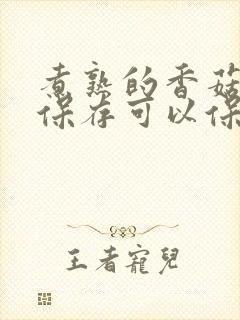 煮熟的香菇
保存可以保
王者寵兒